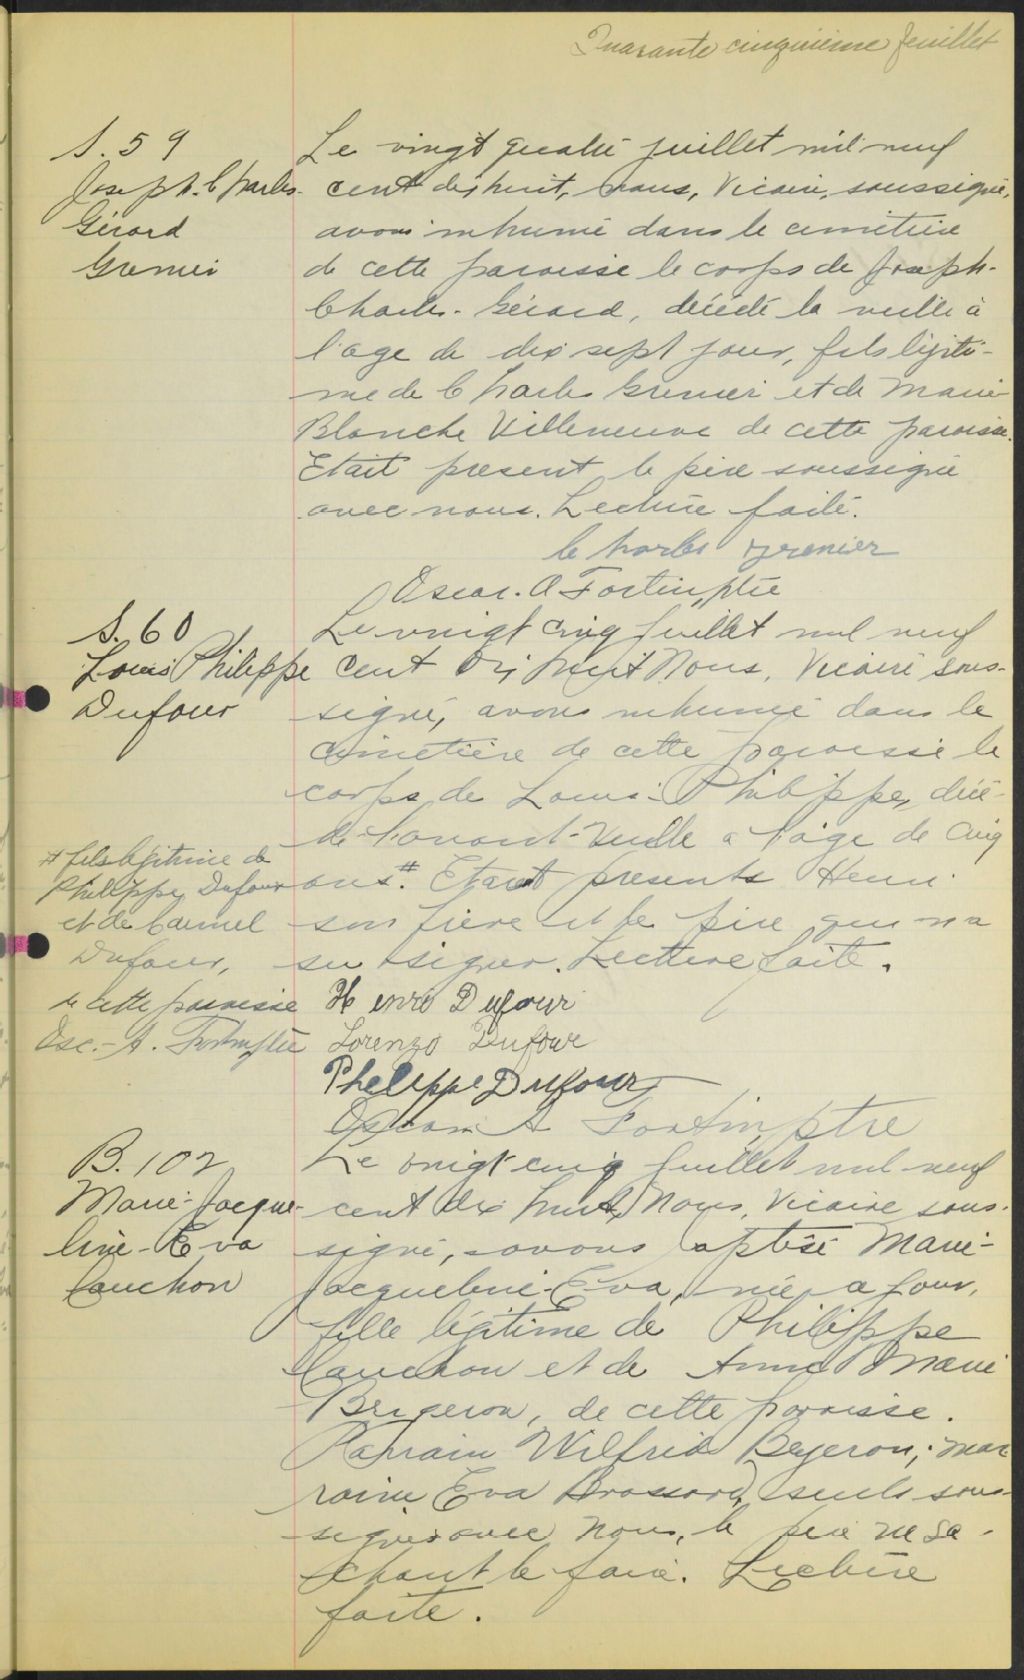 Quarante cinquième feuillet
S. 59
Joseph-Charles-
Gérard
Grenier
Le vingt quatre juillet mil neuf
cent dix huit, nous, Vicaire, soussigné,
avons inhumé dans le cimetière
de cette paroisse le corps de Joseph-
Charles-Gérard, décédé la veille à
l'age de dix sept jours, fils légiti-
me de Charles Grenier et de Marie
Blanche Villeneuve de cette paroisse.
Etait present le père soussigné
avec nous. Lecture faite.
Charles Grenier
Oscar. A Fortin, ptre
S. 60
Louis Philippe
Dufour
Le vingt cinq juillet mil neuf
cent dix huit Nous, Vicaire sous-
signé, avons inhumé dans le
cimetière de cette paroisse le
corps de Louis-Philippe, décé-
dé l'avant-veille a l'age de cinq
ans #. Etaient presents Henri
son frère et le père qui n'a
su signer. Lecture faite.
# fils légitime de
Philippe Dufour
et de Carmel
Dufour,
de cette paroisse
Osc.-A. Fortin, ptre
Henri Dufour
Lorenzo Dufour
Philippe Dufour
Oscar A Fortin, ptre
B. 102
Marie-Jacque-
line-Eva
Cauchon
Le vingt cinq juillet mil neuf
cent dix huit, Nous, Vicaire sous-
signé, avons baptisé Marie-
Jacqueline-Eva, née ce jour,
fille légitime de Philippe
Cauchon et de Anna Marie
Bergeron, de cette paroisse.
Parrain Wilfrid Bergeron; mar
raine Eva Brassard, seuls sous-
signés avec nous, le père ne sa-
chant le faire. Lecture
faite.